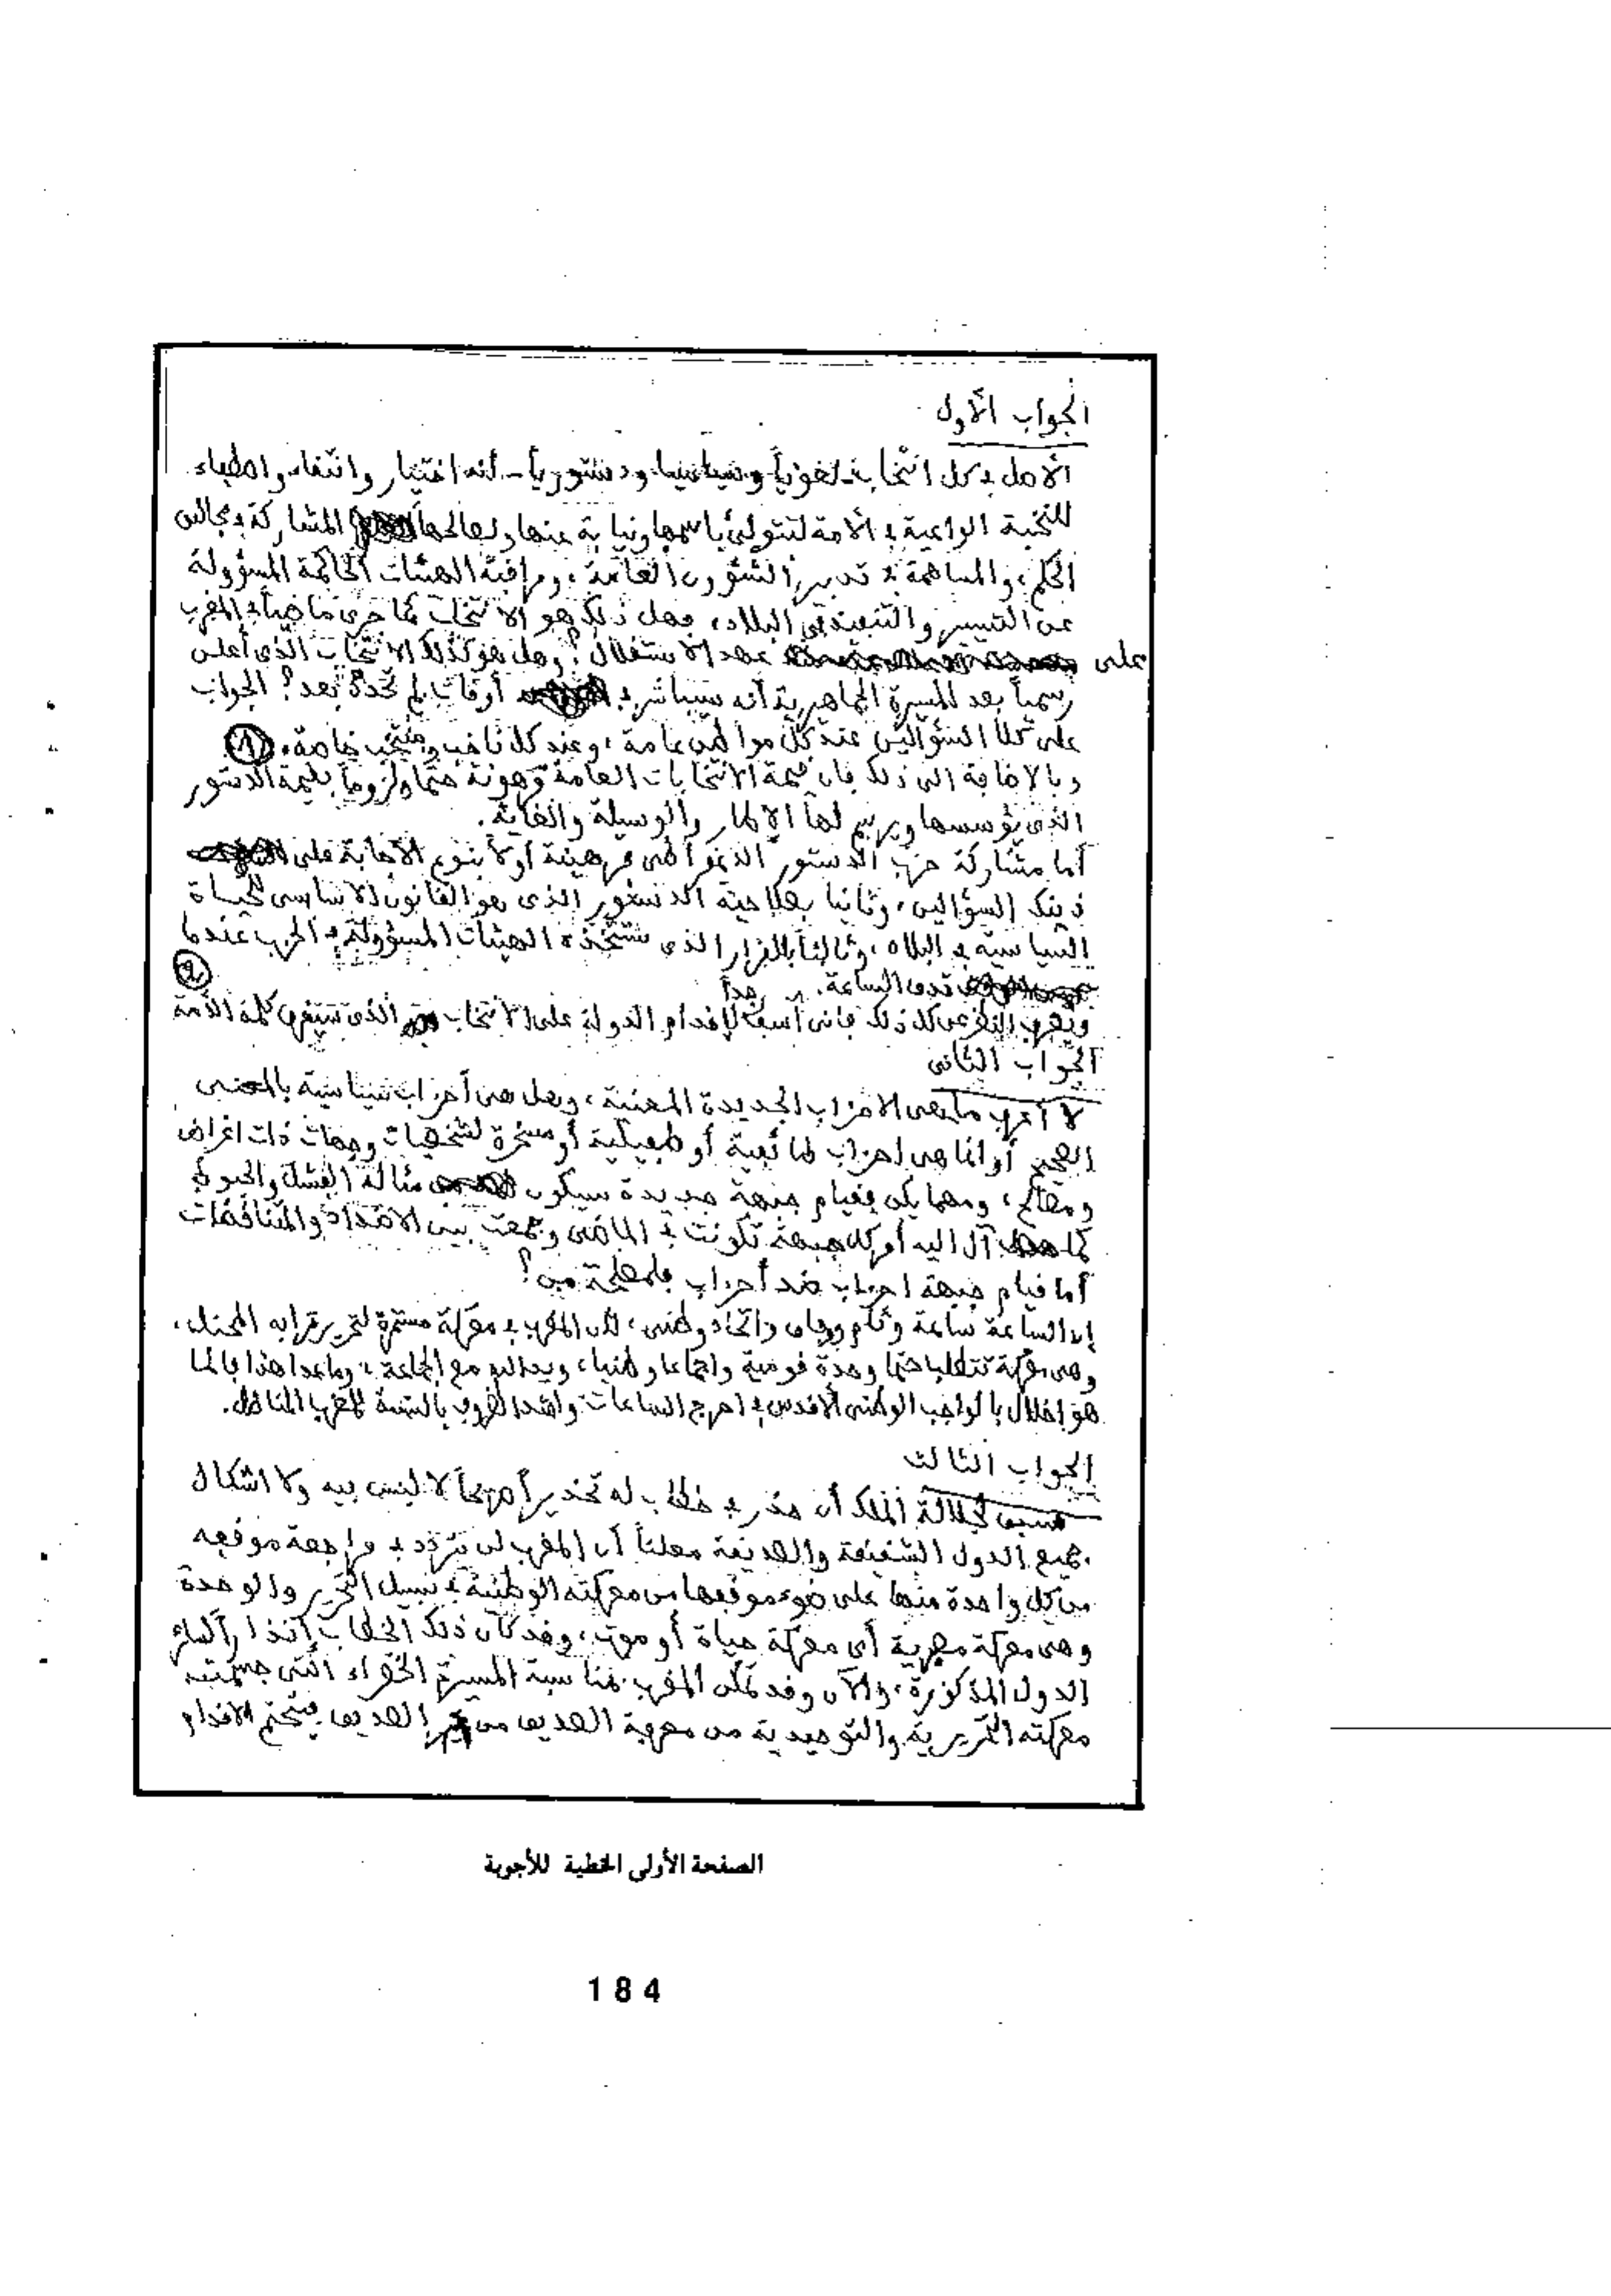 الجواب الأول
الأصل في كل انتخاب - لغوياً وسياسيا ودستورياً - أنه اختيار وانتقاء واصطفاء
للنخبة الواعية في الأمة لتتولى باسمها ونيابة عنها ولصالحها المشاركة في مجالس
الحكم، والمساهمة في تدبير الشؤون العامة، ومراقبة الهيئات الحاكمة المسؤولة
عن التسيير والتنفيذ في البلاد، فهل ذلك هو الانتخاب كما جرى ماضياً في المغرب
على عهد الاستقلال؟ وهل هو كذلك الانتخاب الذي أعلن
رسمياً بعد المسيرة الجماهيرية أنه سيباشر في أوقات لم تحدد بعد؟ الجواب
على كلا السؤالين عند كل مواطن عامة، وعند كل ناخب ومنتخب خاصة. (1)
وبالإضافة الى ذلك فإن قيمة الانتخابات العامة مرهونة حتما ولزوماً بقيمة الدستور
الذي يؤسسها ويرسم لها الإطار والوسيلة والغاية.
أما مشاركة حزب الدستور الديمقراطي فرهينة أولا بنوع الاجابة على
ذينك السؤالين، وثانيا بصلاحية الدستور الذي هو القانون الاساسي للحياة
السياسية في البلاد، وثالثاً بالقرار الذي ستتخذه الهيئات المسؤولة في الحزب عندما
تدق الساعة. (2)
وبصرف النظر عن كل ذلك فإني آسف جداً لإقدام الدولة على الانتخاب الذي سيفرق كلمة الأمة
الجواب الثاني
لا أعرف ما هي الاحزاب الجديدة المعنية، وهل هي أحزاب سياسية بالمعنى
الصحيح أو انما هي احزاب طائفية أو طفيلية أو مسخرة لشخصيات وجهات ذات اغراض
ومصالح، ومهما يكن فقيام جبهة جديدة سيكون مثاله الفشل والحبوط
كما آل اليه أمر كل جبهة تكونت في الماضي وجمعت بين الاضداد والمتناقضات
أما قيام جبهة احزاب ضد أحزاب فلمصلحة من؟
إن الساعة ساعة وئام ووفاق واتحاد وطني، لأن المغرب في معركة مستمرة لتحرير ترابه المحتل،
وهي معركة تتطلب حتما وحدة قومية واجماعا وطنيا، ويد الله مع الجماعة، وما عدا هذا فانما
هو إخلال بالواجب الوطني الأقدس في احرج الساعات واشد الظروف بالنسبة للمغرب المناضل.
الجواب الثالث
سبق لجلالة الملك أن حذر في خطاب له تحذيراً صريحاً لا لبس فيه ولا اشكال
جميع الدول الشقيقة والصديقة معلناً أن المغرب لن يتردد في مراجعة موقفه
من كل واحدة منها على ضوء موقفها من معركته الوطنية في سبيل التحرير والوحدة
وهي معركة مصيرية أي معركة حياة أو موت، وقد كان ذلك الخطاب إنذاراً لسائر
الدول المذكورة، والآن وقد تمكن المغرب بمناسبة المسيرة الخضراء التي جسمت
معركته التحريرية والتوحيدية من معرفة الصديق من غير الصديق يتحتم الاقدام
الصفحة الأولى الخطية للأجوبة
184